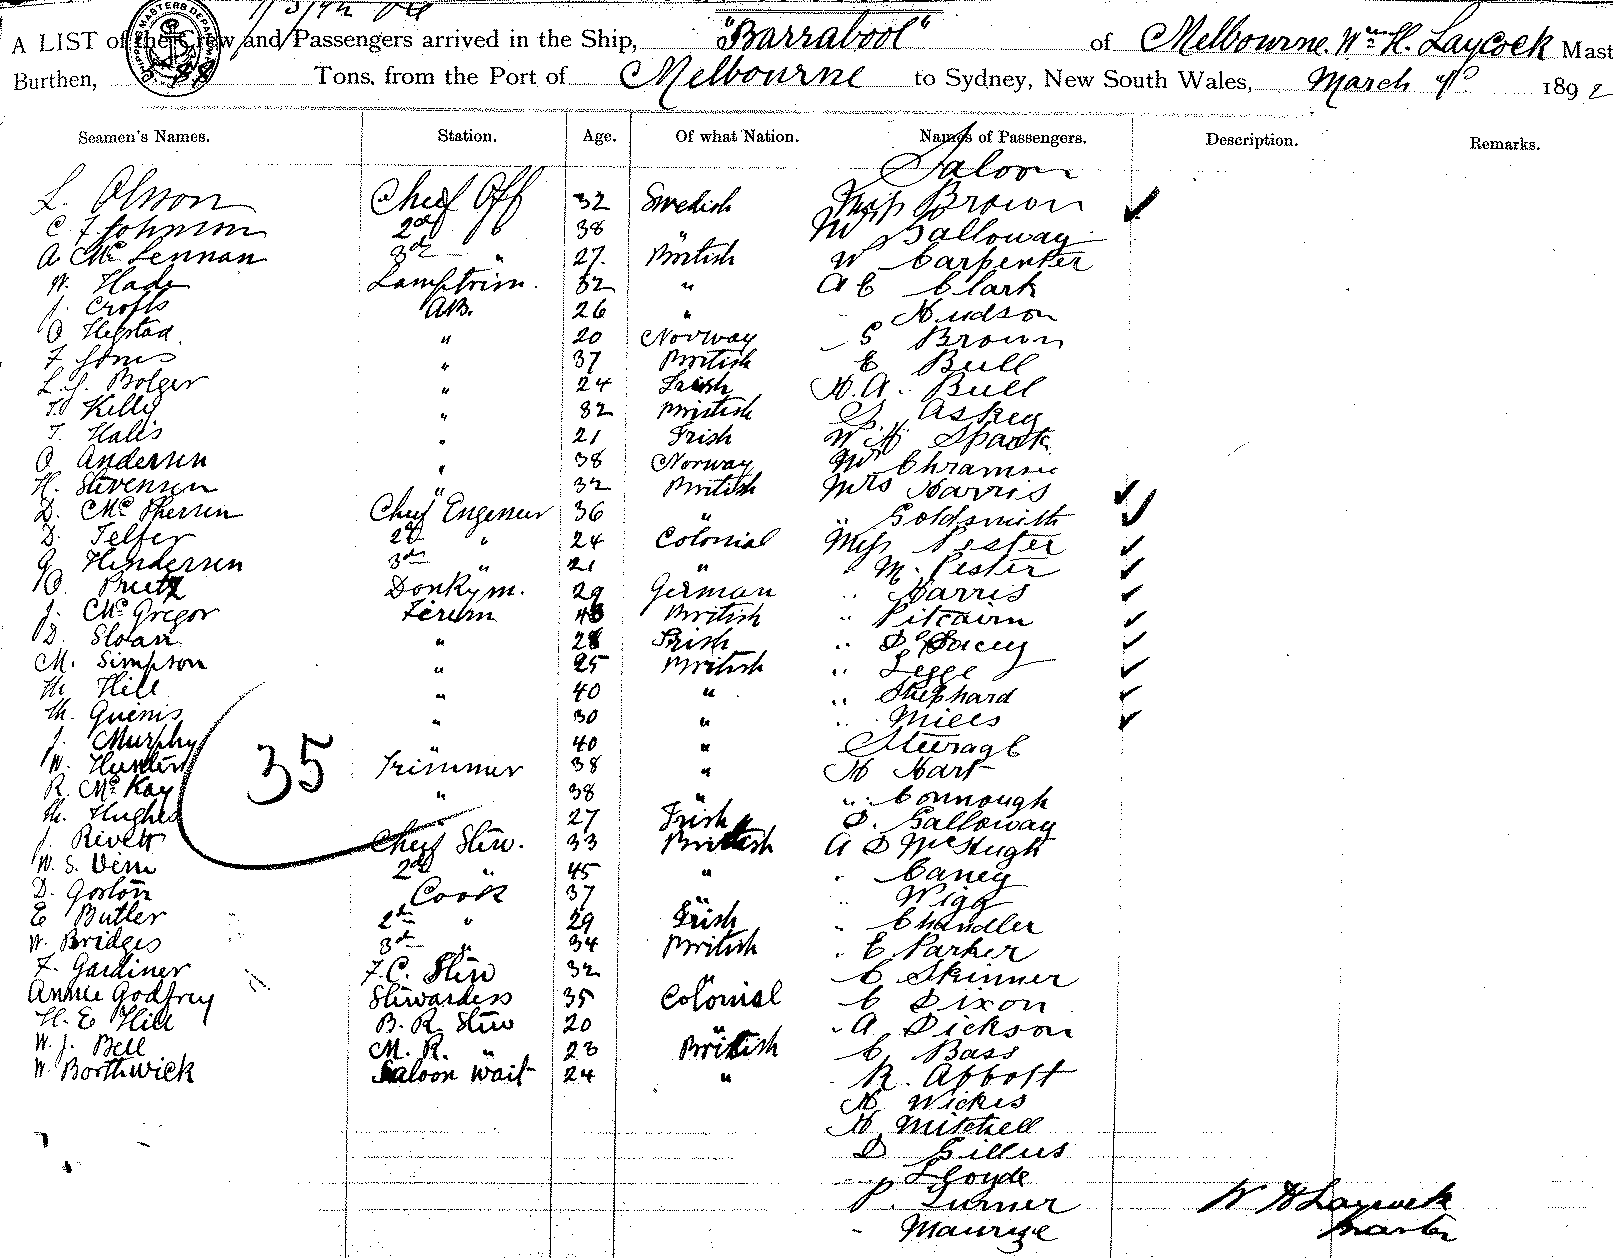 A LIST of the Crew and Passengers arrived in the Ship, "Barrabool" of Melbourne, Wm H. Laycock Mast
Burthen, Tons, from the Port of Melbourne to Sydney, New South Wales, March 1892
Seamen's Names. Station. Age. Of what Nation. Names of Passengers. Description. Remarks.
Saloon
L. Olsson Chief Off 32 Swedish Miss Brown ✓
C F Johnson 2nd " 38 " Mr Galloway
A McLennan 3rd " 27 British W Carpenter
W. Hade Lamptrim. 32 " A C Clark
J. Crofts A.B. 26 " Hudson
O Hegstad " 20 Norway S Brown
F Jones " 37 British E Bull
L. J. Bolger " 24 Irish H. A. Bull
Kelly " 32 British Askey
T. Hales " 21 Irish W H Spark
O Andersen " 38 Norway Mr
H. Stevensen " 32 British Mrs Harris ✓
D. McPhersen Chief Engeneer 36 " " Goldsmith ✓
D. Telfer 2nd " 24 Colonial Miss Pester ✓
G Hendersen 3rd " 21 " M. Pester ✓
O. Donkym. 29 German " Harris ✓
J. McGregor Firem British " Pitcairn ✓
D. Sloan " 28 Irish " ✓
M. Simpson " 25 British " Legge ✓
Th. Hill " 40 " " Shephard ✓
Th. " 30 " " Miles ✓
J. Murphy " 40 " Steerage
W. Hunter Trimmer 38 " H Hart
R. McKay " 38 " " Connough
Th. Hughes 27 Irish D. Galloway
J. Rivett Chief Stew. 33 British A D McHugh
W. S. 2nd " 45 " " Caney
D. Cook 37 " " Wigg
E Butler 2nd " 29 Irish " Chandler
W. Bridges 3rd " 34 British " E Parker
F. Gardiner F.C. Stew 32 " C Skinner
Annie Godfrey Stewardess 35 Colonial C Dixon
H. E Hill B. R. Stew 20 " " A Dickson
W. J. Bell M. R. " 23 British C. Bass
W Borthwick Saloon Wait 24 " R. Abbott
H Wickis
H Mitchell
D Gillus
Lloyde
P. Turner
35
W H Laycock
Master